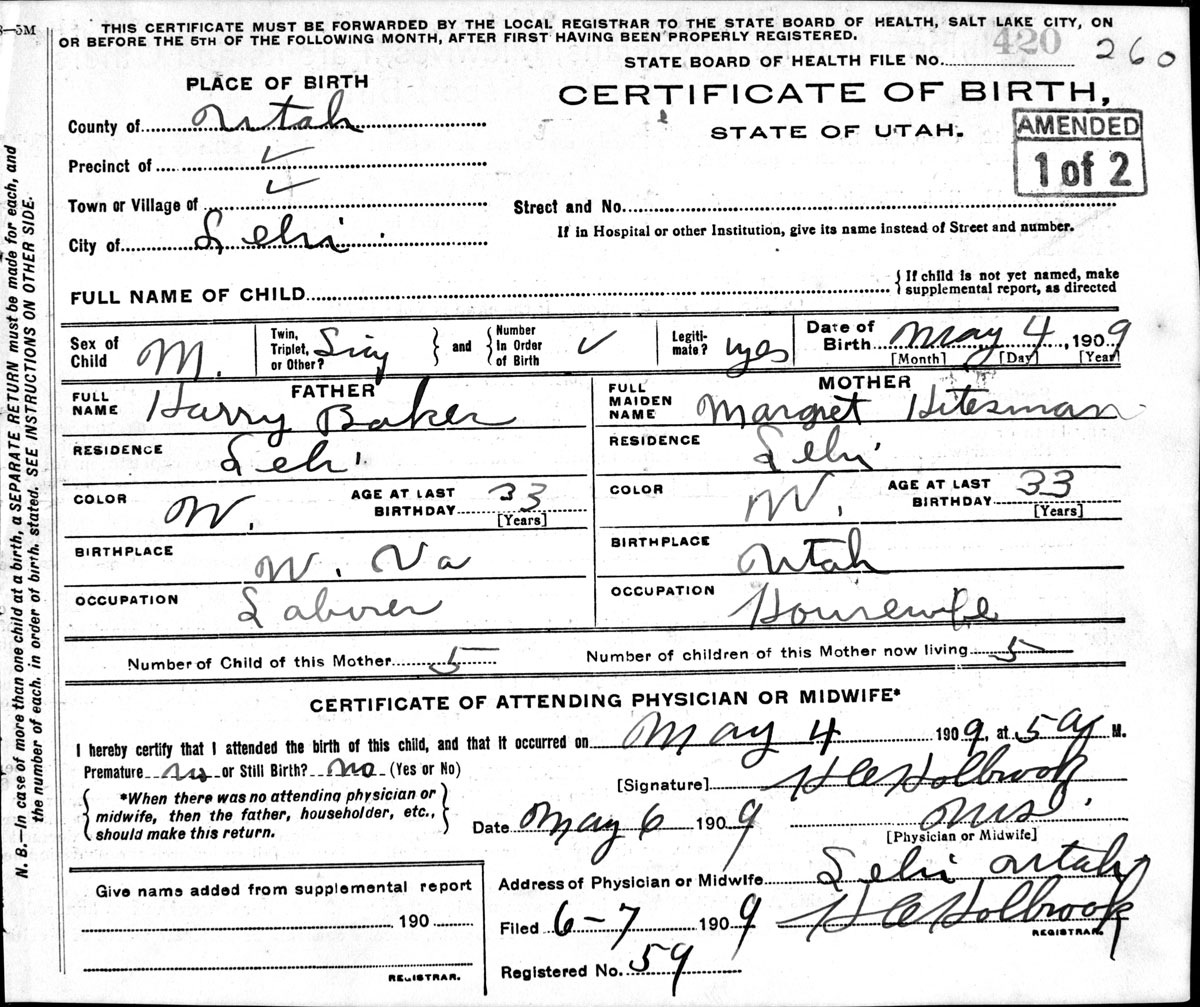 8—5M
THIS CERTIFICATE MUST BE FORWARDED BY THE LOCAL REGISTRAR TO THE STATE BOARD OF HEALTH, SALT LAKE CITY, ON
OR BEFORE THE 5TH OF THE FOLLOWING MONTH, AFTER FIRST HAVING BEEN PROPERLY REGISTERED.
420
STATE BOARD OF HEALTH FILE No. 260
PLACE OF BIRTH
CERTIFICATE OF BIRTH,
STATE OF UTAH.
AMENDED
1 of 2
County of Utah
Precinct of ✓
Town or Village of ✓
Street and No.
City of Lehi
If in Hospital or other Institution, give its name instead of Street and number.
FULL NAME OF CHILD
{ If child is not yet named, make
supplemental report, as directed
Sex of Child M.
Twin, Triplet, or Other? Sing } and { Number In Order of Birth ✓
Legiti-mate? yes
Date of Birth May 4, 1909
[Month] [Day] [Year]
FATHER
FULL NAME Harry Baker
RESIDENCE Lehi
COLOR W. AGE AT LAST BIRTHDAY 33 [Years]
BIRTHPLACE W. Va
OCCUPATION Laborer
MOTHER
FULL MAIDEN NAME Margret Hitesman
RESIDENCE Lehi
COLOR W. AGE AT LAST BIRTHDAY 33 [Years]
BIRTHPLACE Utah
OCCUPATION Housewife
Number of Child of this Mother 5 Number of children of this Mother now living 5
CERTIFICATE OF ATTENDING PHYSICIAN OR MIDWIFE*
I hereby certify that I attended the birth of this child, and that it occurred on May 4 1909, at 5 a M.
Premature no or Still Birth? no (Yes or No)
[Signature] H C Holbrook
{ *When there was no attending physician or
midwife, then the father, householder, etc.,
should make this return. }
Date May 6 1909
[Physician or Midwife]
Give name added from supplemental report
190
REGISTRAR.
Address of Physician or Midwife Lehi Utah
Filed 6-7 1909 H C Holbrook
REGISTRAR.
Registered No. 59
N. B.—In case of more than one child at a birth, a SEPARATE RETURN must be made for each, and
the number of each, in order of birth, stated. SEE INSTRUCTIONS ON OTHER SIDE.